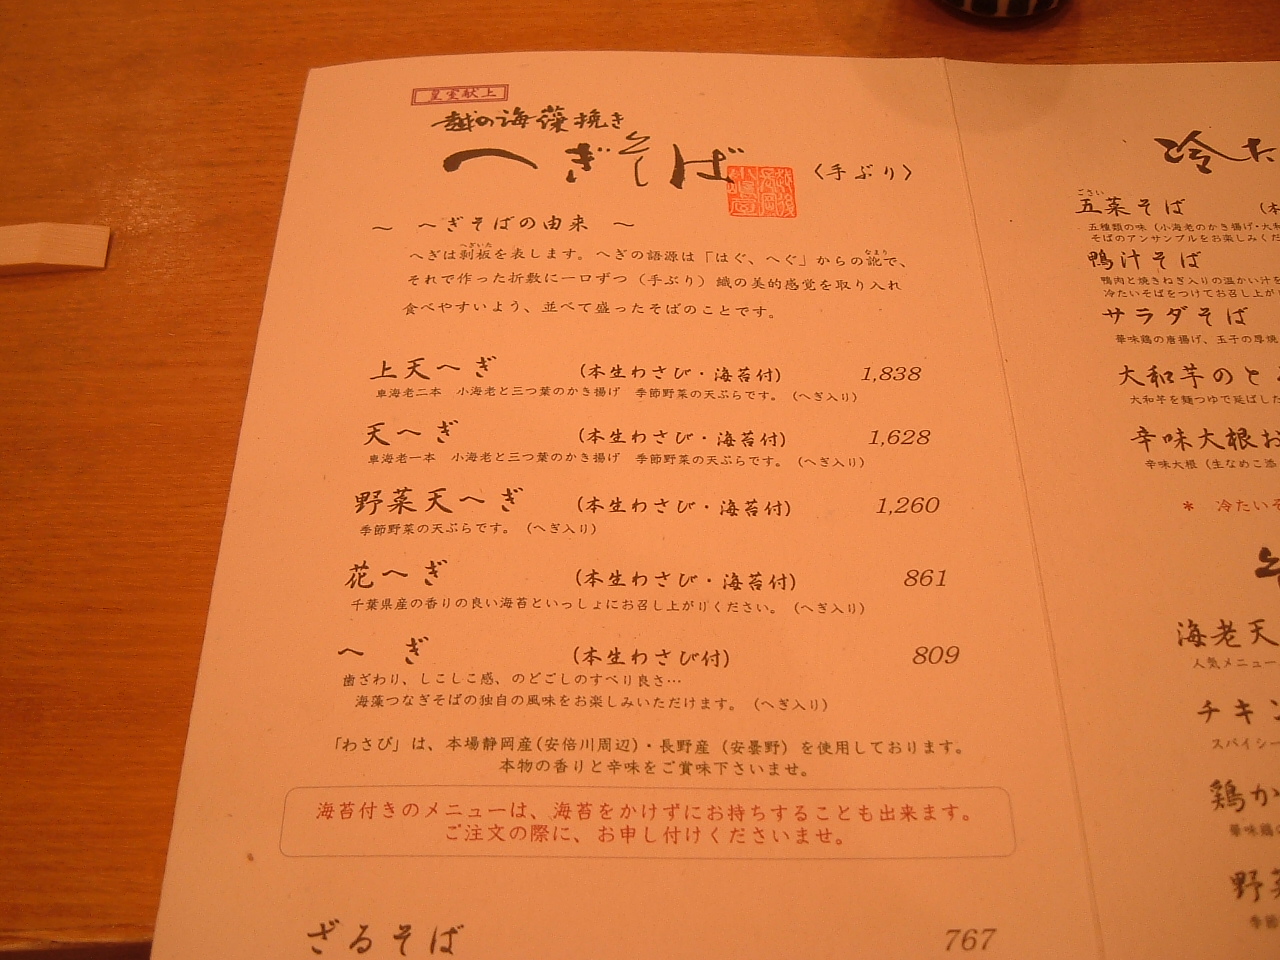 皇室献上
越の海藻挽き
へぎそば
〈手ぶり〉
～ へぎそばの由来 ～
へぎいた
なまり
へぎは剥板を表します。へぎの語源は「はぐ、へぐ」からの訛で、
それで作った折敷に一口ずつ（手ぶり）織の美的感覚を取り入れ
食べやすいよう、並べて盛ったそばのことです。
上天へぎ (本生わさび・海苔付) 1,838
車海老二本 小海老と三つ葉のかき揚げ 季節野菜の天ぷらです。（へぎ入り）
天へぎ (本生わさび・海苔付) 1,628
車海老一本 小海老と三つ葉のかき揚げ 季節野菜の天ぷらです。（へぎ入り）
野菜天へぎ (本生わさび・海苔付) 1,260
季節野菜の天ぷらです。（へぎ入り）
花へぎ (本生わさび・海苔付) 861
千葉県産の香りの良い海苔といっしょにお召し上がりください。（へぎ入り）
へぎ (本生わさび付) 809
歯ざわり、しこしこ感、のどごしのすべり良さ…
海藻つなぎそばの独自の風味をお楽しみいただけます。（へぎ入り）
「わさび」は、本場静岡産（安倍川周辺）・長野産（安曇野）を使用しております。
本物の香りと辛味をご賞味下さいませ。
海苔付きのメニューは、海苔をかけずにお持ちすることも出来ます。
ご注文の際に、お申し付けくださいませ。
ざるそば 767
冷た
ごさい
五菜そば
五種類の味（小海老のかき揚げ・大和
そばのアンサンブルをお楽しみくだ
鴨汁そば
鴨肉と焼きねぎ入りの温かい汁を
冷たいそばをつけてお召し上が
サラダそば
華味鶏の唐揚げ、玉子の厚焼
大和芋のと
大和芋を麺つゆで延ばした
辛味大根お
辛味大根（生なめこ添
＊ 冷たいそ
海老天
人気メニュー
チキン
スパイシー
鶏か
華味鶏の
野菜
季節